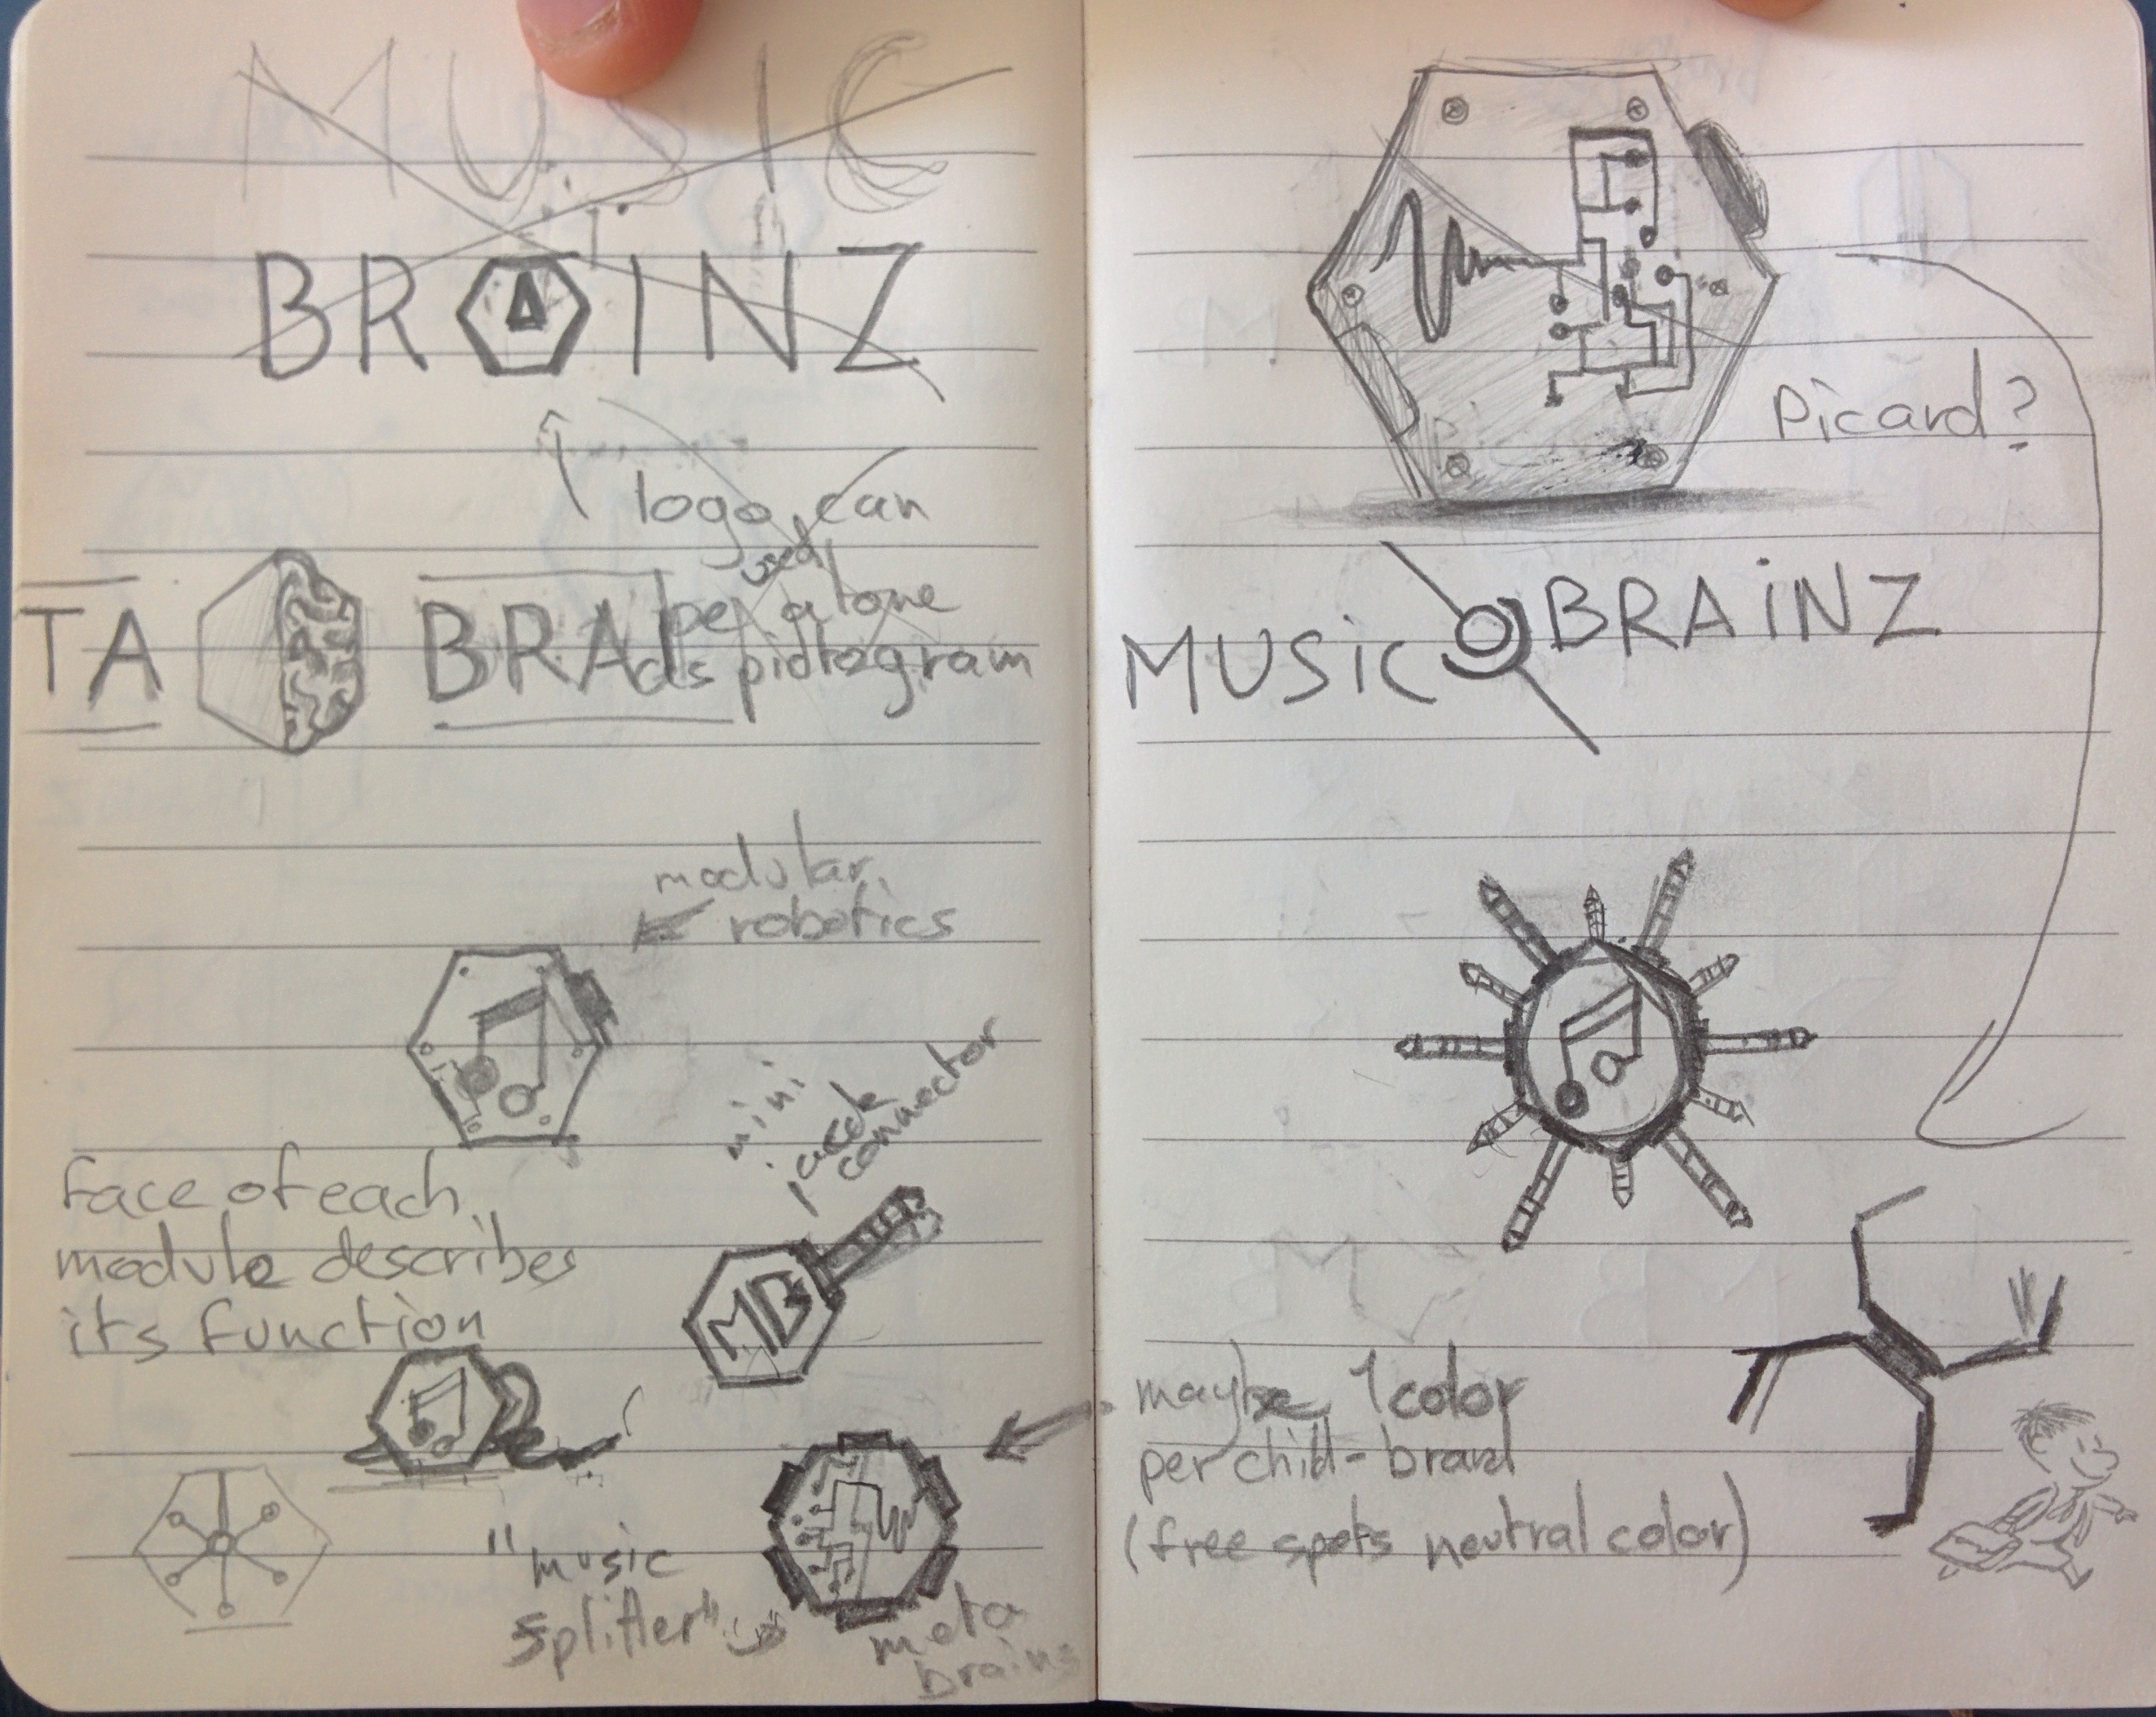 MUSIC
BRAINZ
logo can
used
be alone
as pictogram
TA BRAI
modular
robotics
mini
jack
connector
face of each
module describes
its function
MB
"music
splitter"
meta
brains
Picard?
MUSiC BRAiNZ
maybe 1 color
per child-brand
(free spots neutral color)